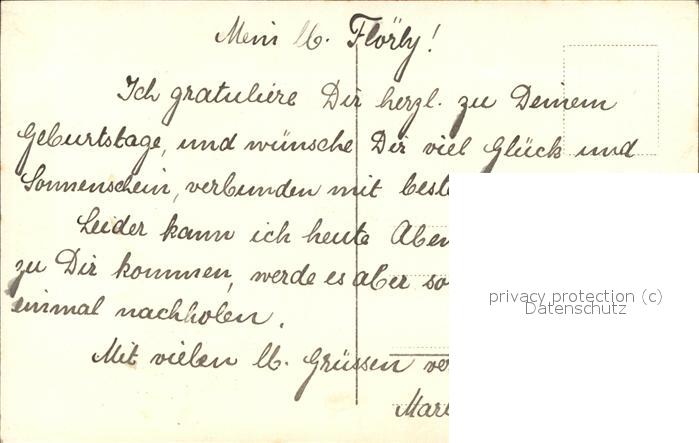 Mein lb. Flörly!
Ich gratuliere Dir herzl. zu Deinem
Geburtstage, und wünsche Dir viel Glück und
Sonnenschein, verbunden mit best
Leider kann ich heute Aben
zu Dir kommen, werde es aber so
einmal nachholen.
Mit vielen lb. Grüssen ver
Mar
privacy protection (c)
Datenschutz